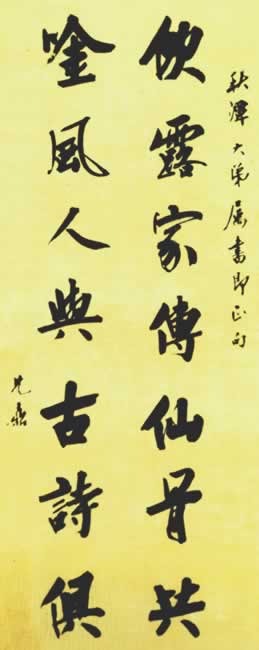 秋潭大弟屬書即正句
飲露家傳仙骨共
唫風人與古詩俱
兄